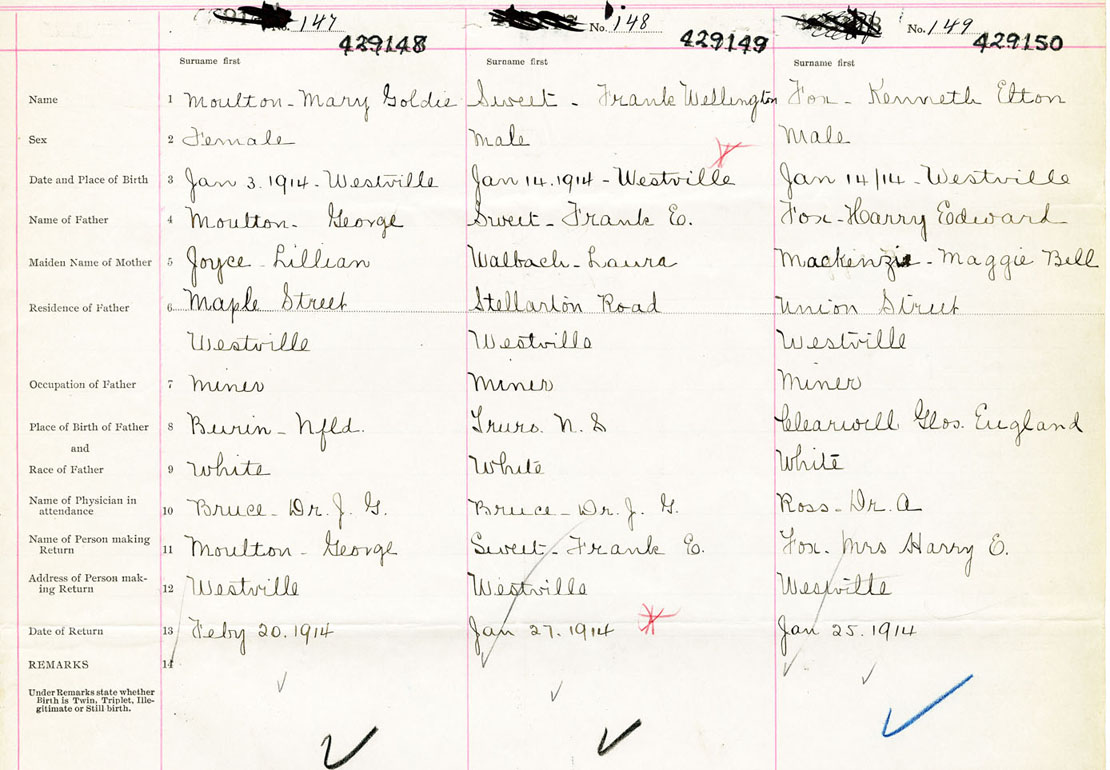 No. 147 No. 148 No. 149
429148 429149 429150
Surname first Surname first Surname first
Name 1 Moulton - Mary Goldie Sweet - Frank Wellington Fox - Kenneth Elton
Sex 2 Female Male Male
Date and Place of Birth 3 Jan 3. 1914 - Westville Jan 14. 1914 - Westville Jan 14/14 - Westville
Name of Father 4 Moulton - George Sweet - Frank E. Fox - Harry Edward
Maiden Name of Mother 5 Joyce - Lillian Walbach - Laura Mackenzie - Maggie Bell
Residence of Father 6 Maple Street Stellarton Road Union Street
Westville Westville Westville
Occupation of Father 7 Miner Miner Miner
Place of Birth of Father 8 Burin - Nfld. Truro. N. S Clearwell Glos. England
and
Race of Father 9 White White White
Name of Physician in
attendance 10 Bruce - Dr. J. G. Bruce - Dr. J. G. Ross - Dr. A
Name of Person making
Return 11 Moulton - George Sweet - Frank E. Fox - Mrs Harry E.
Address of Person mak-
ing Return 12 Westville Westville Westville
Date of Return 13 Feby 20. 1914 Jan 27. 1914 Jan 25. 1914
REMARKS 14
Under Remarks state whether
Birth is Twin, Triplet, Ille-
gitimate or Still birth.